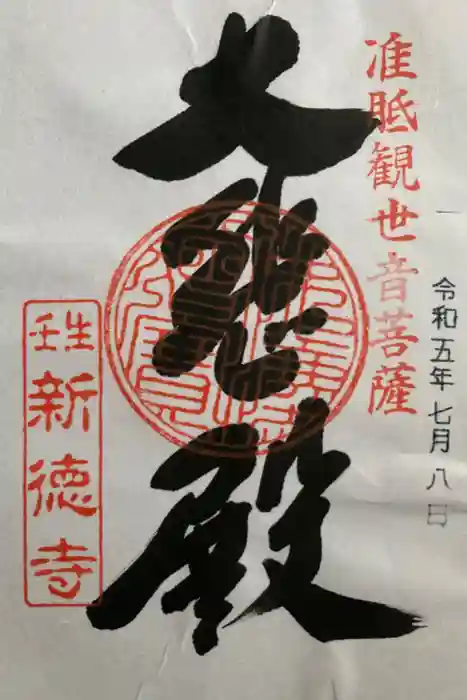 准胝観世音菩薩
令和五年七月八日
大悲殿
壬生
新徳寺